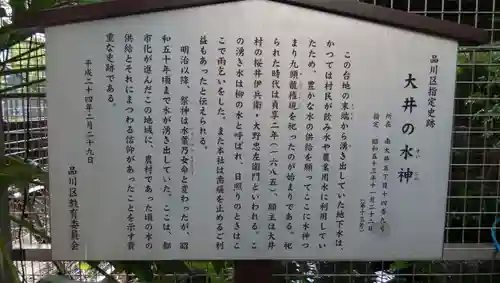 品川区指定史跡
大井の水神
所在 南大井五丁目十四番九号
指定 昭和五十三年十一月二十二日
この台地の末端から湧き出していた地下水は、
かつては村民が飲み水や農業用水に利用してい
たため、豊かな水の供給を願ってここに水神つ
まり九頭龍権現を祀ったのが始まりである。祀
られた時代は貞享二年(一六八五)、願主は大井
村の桜井伊兵衛・大野忠左衛門といわれる。こ
の湧き水は柳の水と呼ばれ、日照りのときはこ
こで雨乞いをした。また本社は歯痛を止めるご利
益もあったと伝えられる。
明治以降、祭神は水葉乃女命と変わったが、昭
和五十年頃まで水が湧き出していた。ここは、都
市化が進んだこの地域に、農村であった頃の水の
供給とそれにまつわる信仰があったことを示す貴
重な史跡である。
平成二十四年二月二十九日
品川区教育委員会